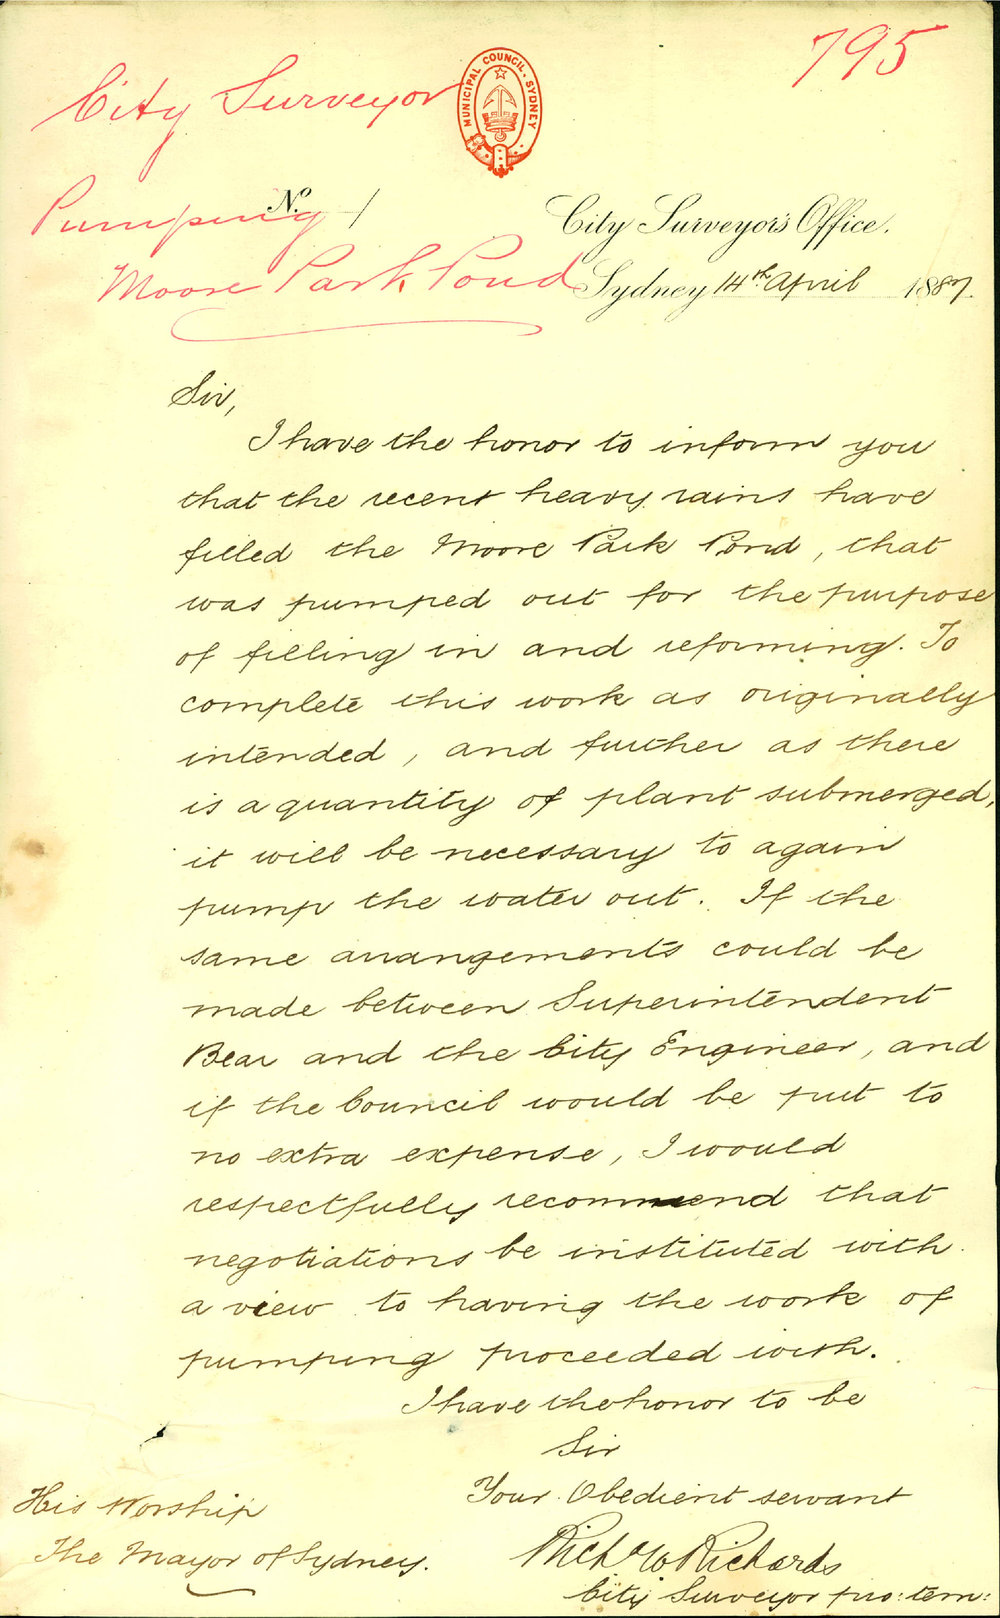 795
City Surveyor
MUNICIPAL COUNCIL · SYDNEY
Pumping
No. /
City Surveyor's Office.
Moore Park Pond
Sydney 14th April 1887.
Sir,
I have the honor to inform you
that the recent heavy rains have
filled the Moore Park Pond, that
was pumped out for the purpose
of filling in and reforming. To
complete this work as originally
intended, and further as there
is a quantity of plant submerged,
it will be necessary to again
pump the water out. If the
same arrangements could be
made between Superintendent
Bear and the City Engineer, and
if the Council would be put to
no extra expense, I would
respectfully recommend that
negotiations be instituted with
a view to having the work of
pumping proceeded with.
I have the honor to be
Sir
Your Obedient servant
Richd W Richards
City Surveyor pro: tem:
His Worship
The Mayor of Sydney.